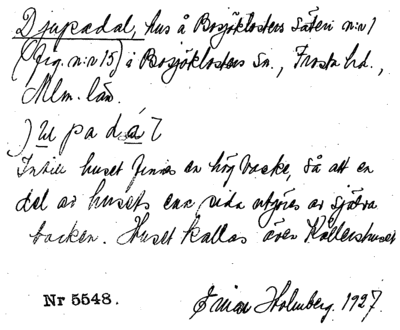 Djupadal, hus å Bosjöklosters Säteri n:r 1
(fig. n:r 15) i Bosjöklosters Sn., Frosta hd.,
Mlm. län.
Intill huset finnes en hög backe, så att en
del av husets ena sida utgöres av själva
backen. Huset kallas även Källershuset
Nr 5548. Einar Holmberg. 1927.